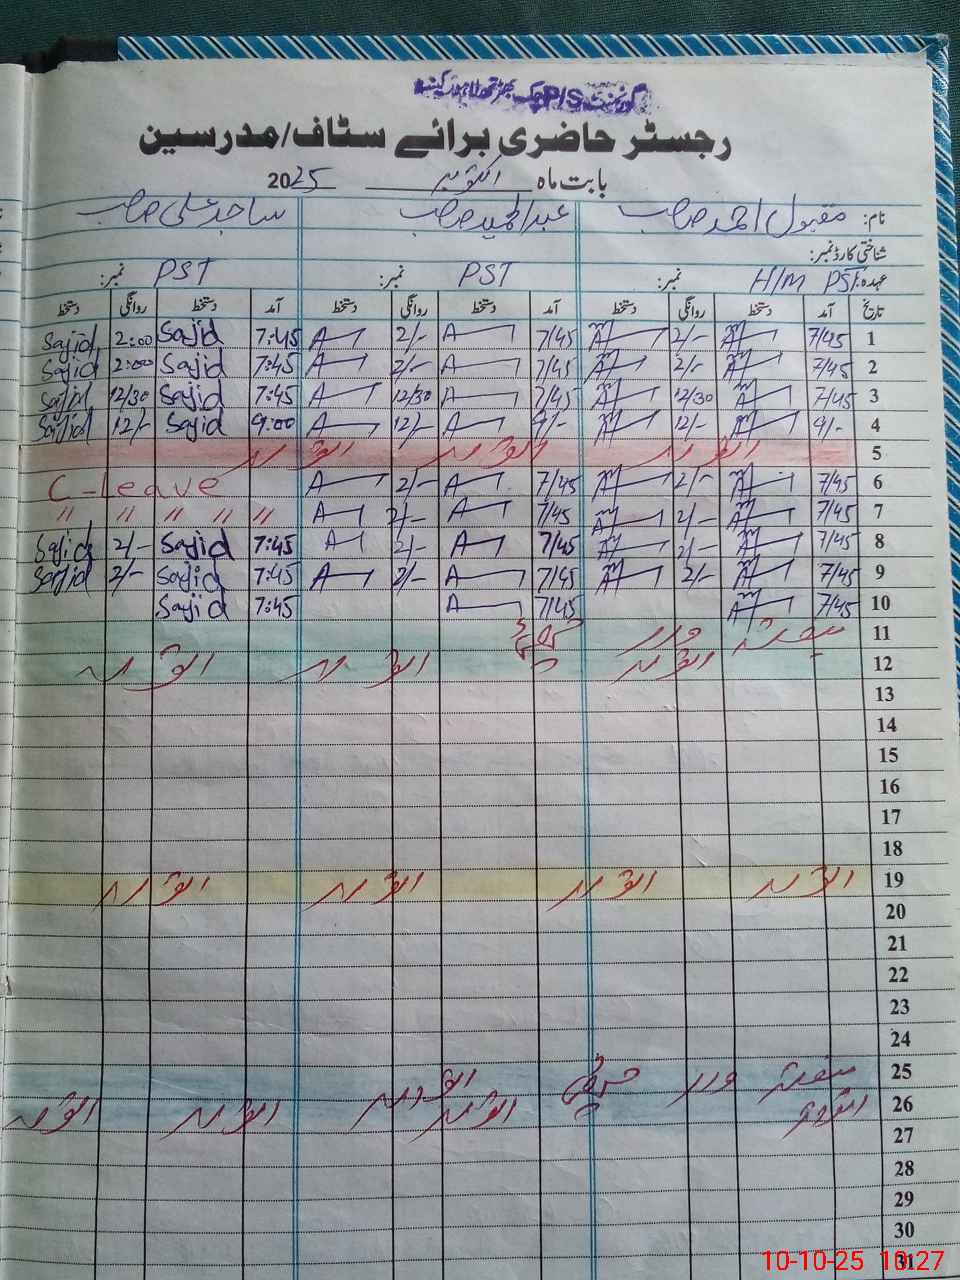 گورنمنٹ P/S چک
رجسٹر حاضری برائے سٹاف/مدرسین
بابت ماہ اکتوبر 2025
نام: مقبول احمد صاحب عبدالحمید صاحب ساجد علی صاحب
شناختی کارڈ نمبر:
عہدہ: H/M PST نمبر: PST نمبر: PST نمبر:
تاریخ آمد دستخط روانگی دستخط آمد دستخط روانگی دستخط آمد دستخط روانگی دستخط
1 7/45 2/- 7/45 A 2/- A 7:45 Sajid 2:00 Sajid
2 7/45 2/- 7/45 A 2/- A 7:45 Sajid 2:00 Sajid
3 7/45 12/30 7/45 A 12/30 A 7:45 Sajid 12/30 Sajid
4 9/- 12/- 9/- A 12/- A 9:00 Sajid 12/- Sajid
5 اتوار اتوار اتوار
6 7/45 2/- 7/45 A 2/- A C-Leave
7 7/45 2/- 7/45 A 2/- A " " " " "
8 7/45 2/- 7/45 A 2/- A 7:45 Sajid 2/- Sajid
9 7/45 2/- 7/45 A 2/- A 7:45 Sajid 2/- Sajid
10 7/45 7/45 A 7:45 Sajid
11 ہفتہ وار چھٹی
12 اتوار اتوار اتوار
13
14
15
16
17
18
19 اتوار اتوار اتوار اتوار
20
21
22
23
24
25 ہفتہ وار چھٹی
26 اتوار اتوار اتوار اتوار
27
28
29
30
31
10-10-25 10:27